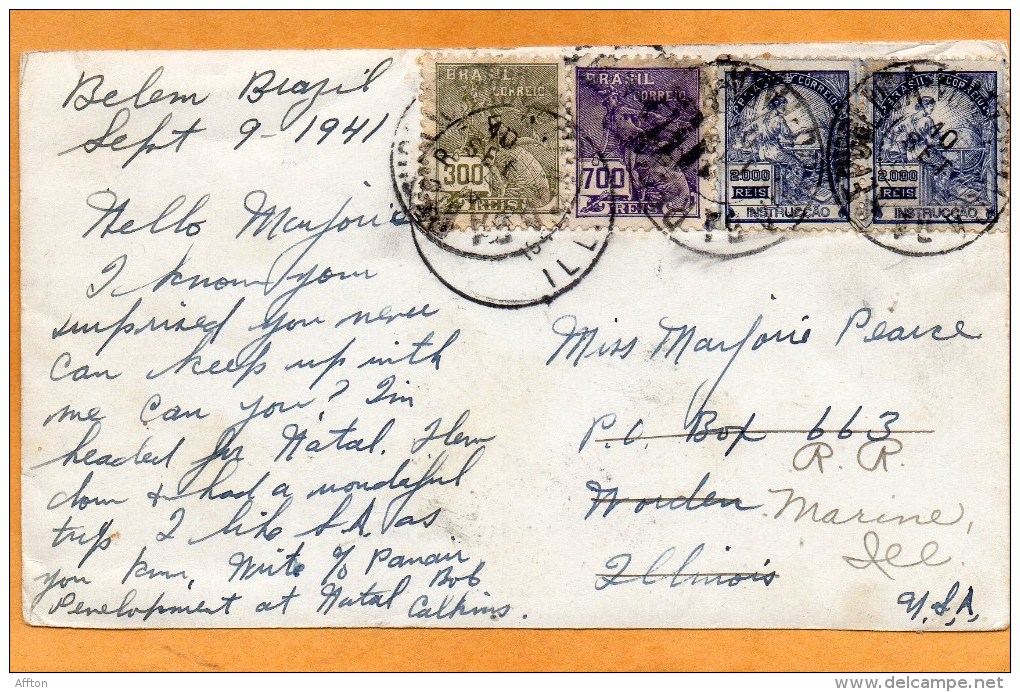 Belem Brazil
Sept 9-1941
Hello Marjorie
I know your
surprised you never
can keep up with
me can you? I'm
headed for Natal. Flew
down & had a wonderful
trip I like S.A. as
you know, Write % Panair
Development at Natal
Bob
Calkins.
BRASIL
CORREIO
300
REIS
BRASIL
CORREIO
700
REIS
BRASIL CORREIO
2.000
REIS
INSTRUCÇÃO
BRASIL CORREIO
2.000
REIS
INSTRUCÇÃO
10
SET
ILL.
10
SET
Miss Marjorie Pearce
P.O. Box 663
R. R.
Worden Marine,
Illinois Ill
U.S.A.
Affton
www.delcampe.net